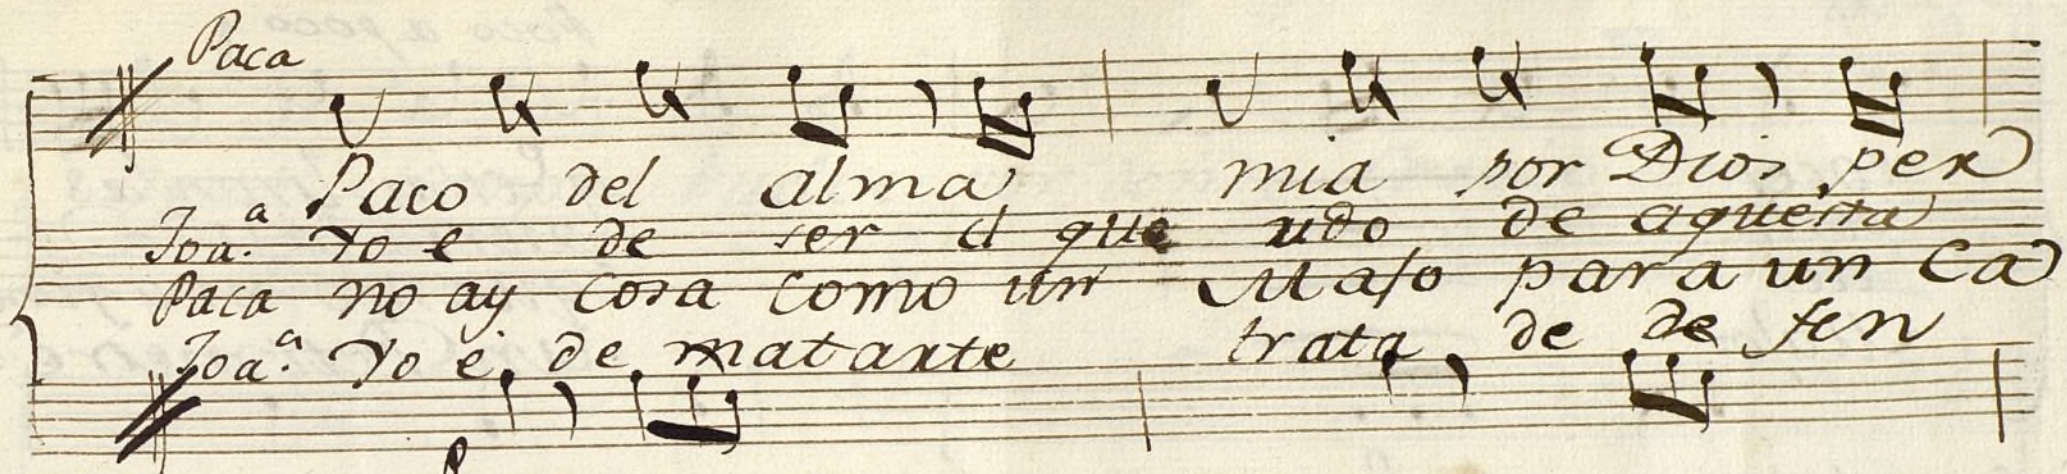 Paca
Paco del alma mia por Dios per
Joa.ª Yo e de ser el que udo de aquesta
Paca no ay cosa como un Majo para un Ca
Joa.ª Yo e de matarte trata de de fen
p